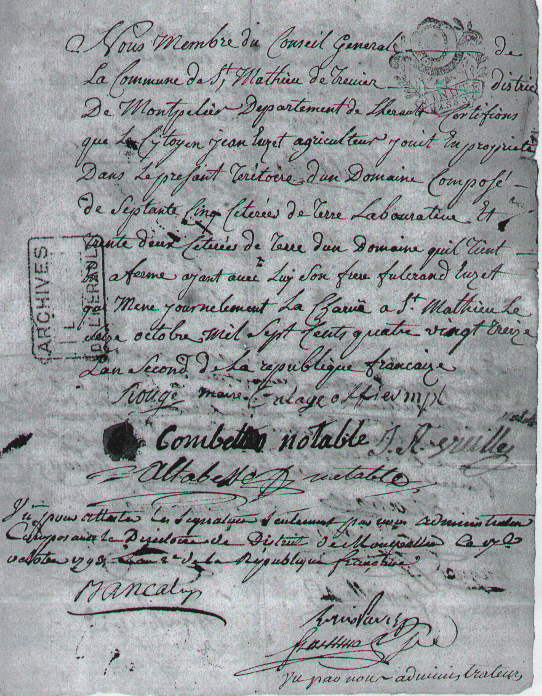 Nous Membre du Conseil General de
La Commune de St Mathieu de Trevier district
De Montpelier Departement de Lherault Certifions
que Le Cytoyen jean Euzet agriculteur jouit En propriété
Dans Le presant Téritoire dun Domaine Composé
de Septante Cinq Céterées de Terre Labourative Et
trente deux Céterées de Terre dun Domaine quil Tient
a ferme ayant avec Luy Son frere fulcrand Euzet
qui Mene journelement La Charüe a St Mathieu Le
octobre Mil Sept Cents quatre vingt treize
Lan Second de La republique francaize
Rougé maire
Combe notable
notable
Vu pour attester Les Signatures Seulement par nous administrateurs
Composant le Directoire de District de Montpellier Ce
octobre 1793 Lan 2e de La Republique francaise
Vu par nous administrateurs
ARCHIVES
L'HERAULT